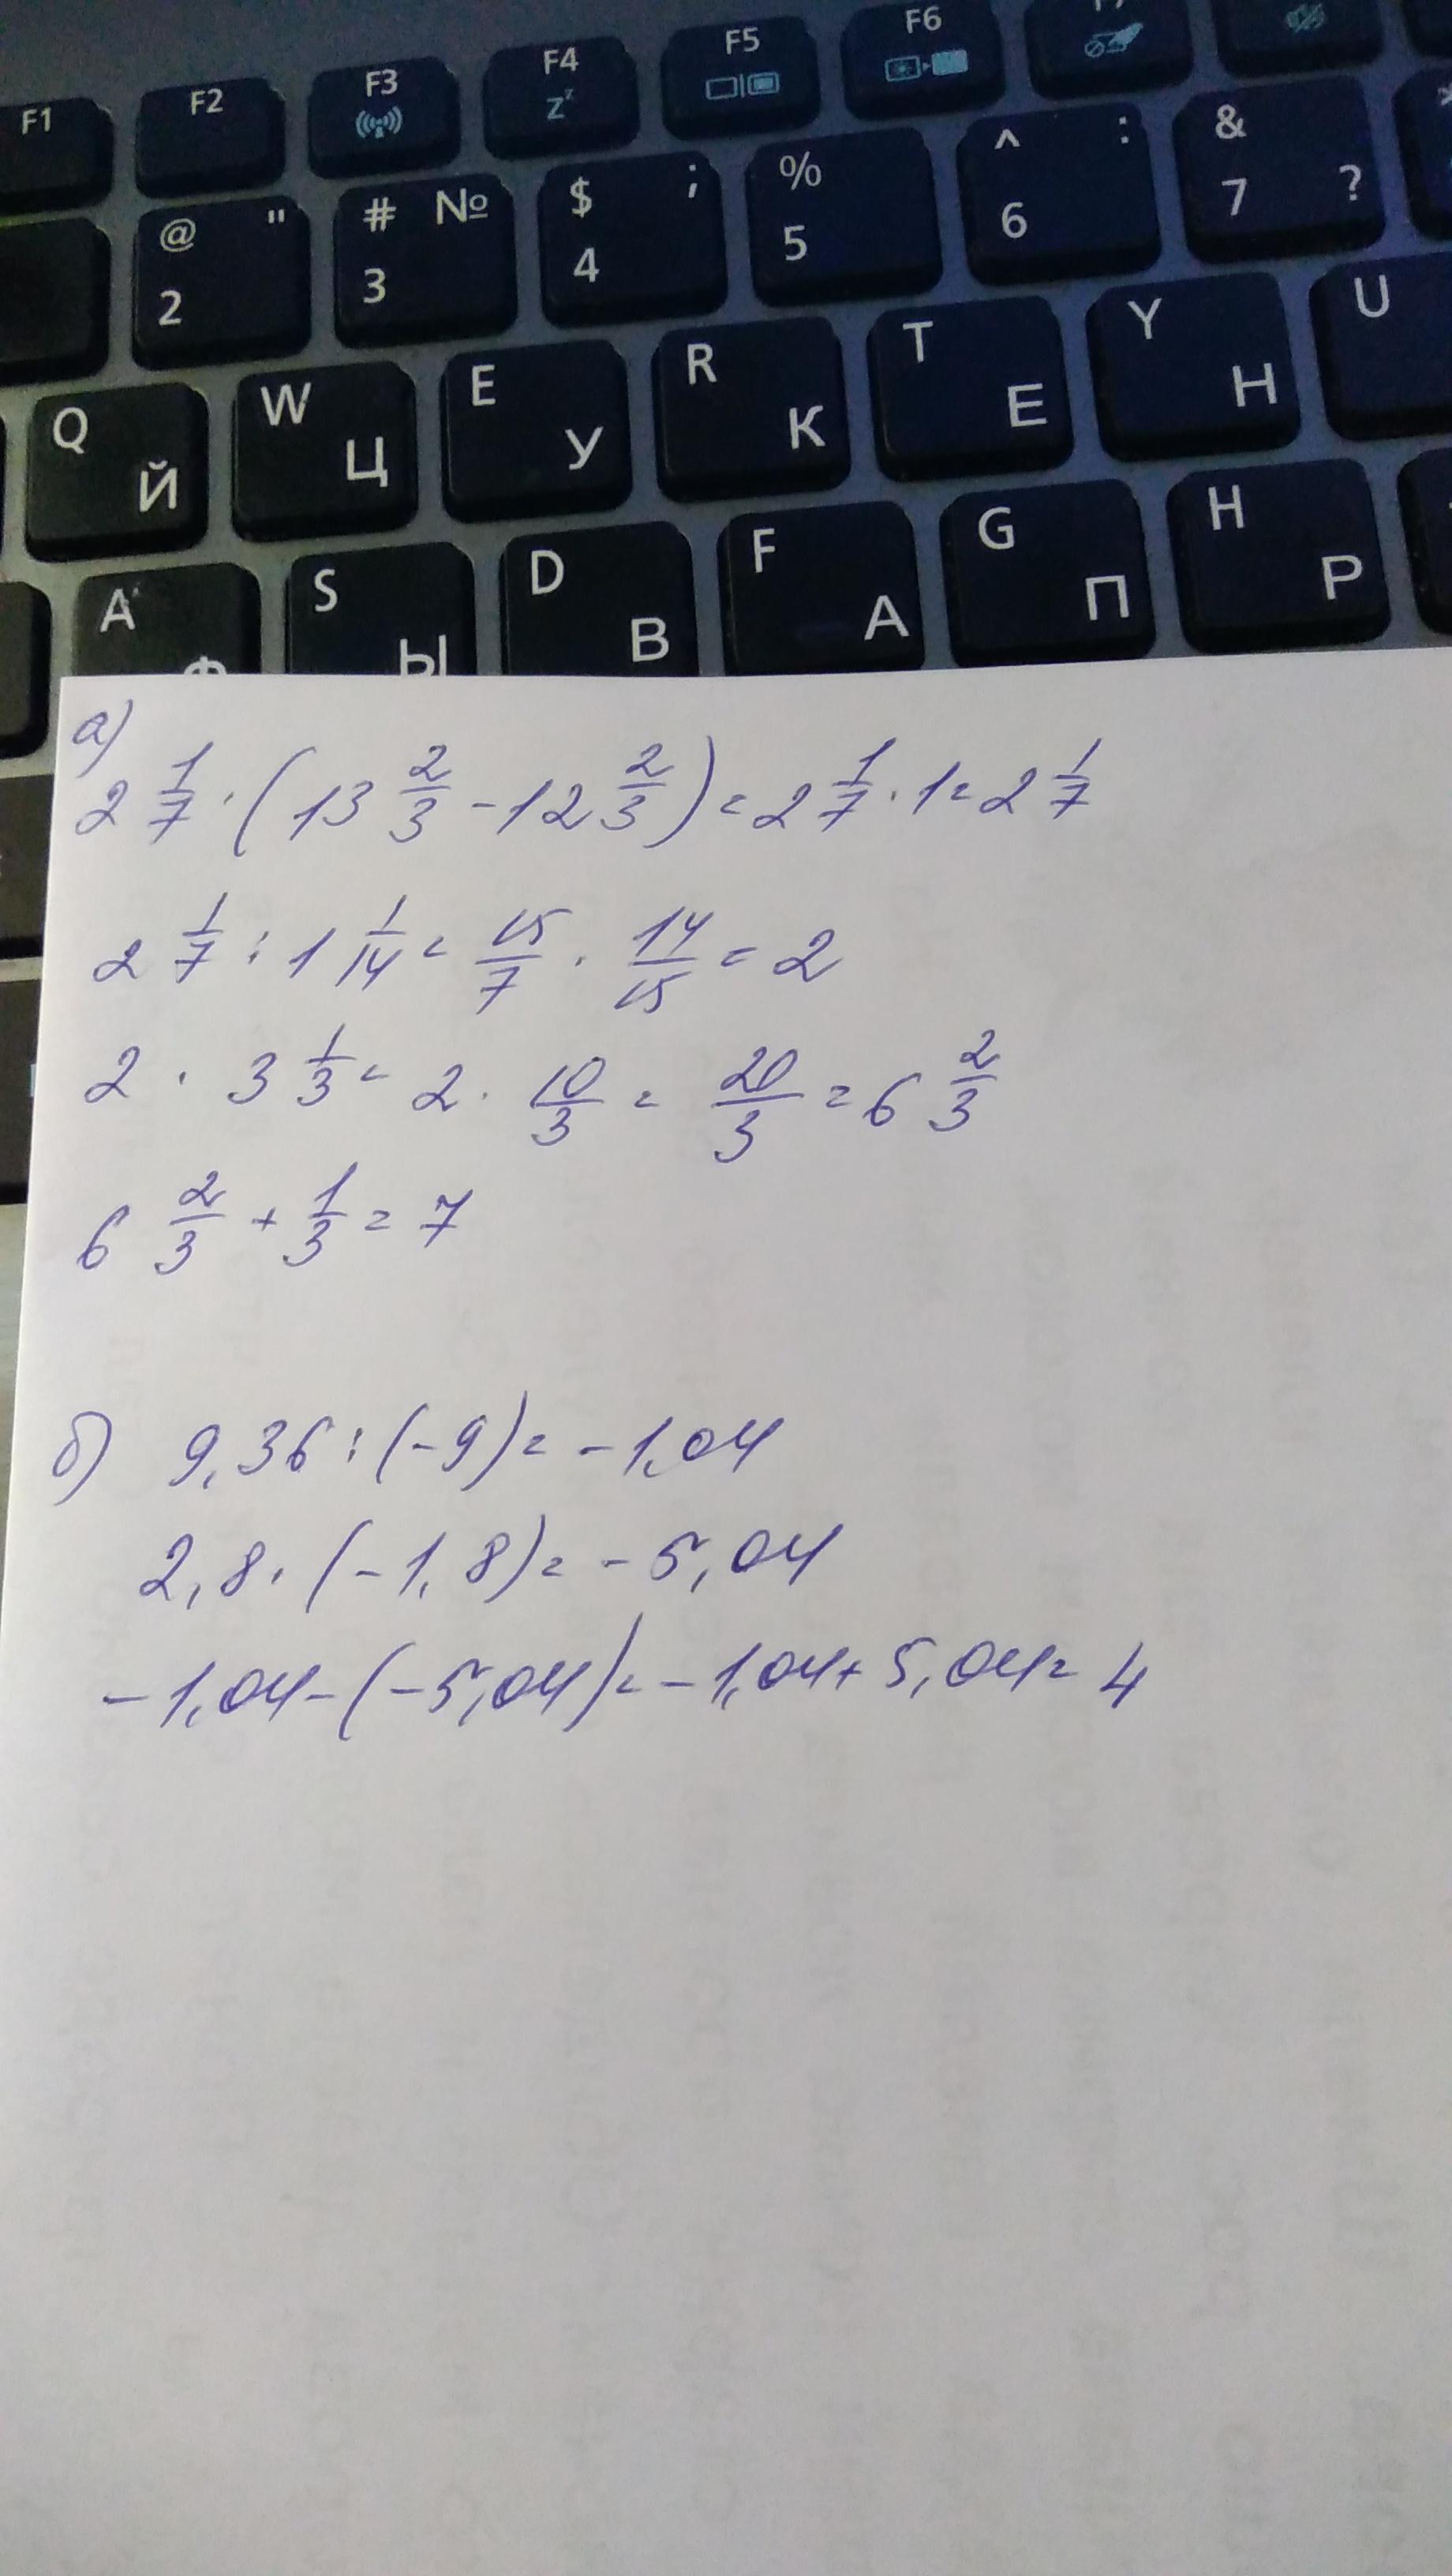 F1 F2 F3 F4 F5 F6
Z z
@ " 2 # № 3 $ ; 4 % 5 ^ : 6 & 7 ?
Q Й W Ц E У R К T Е Y Н U
A S Ы D В F А G П H Р
а)
2 1/7 · (13 2/3 - 12 2/3) = 2 1/7 · 1 = 2 1/7
2 1/7 : 1 1/14 = 15/7 · 14/15 = 2
2 · 3 1/3 = 2 · 10/3 = 20/3 = 6 2/3
6 2/3 + 1/3 = 7
б) 9,36 : (-9) = -1,04
2,8 · (-1,8) = -5,04
-1,04 - (-5,04) = -1,04 + 5,04 = 4